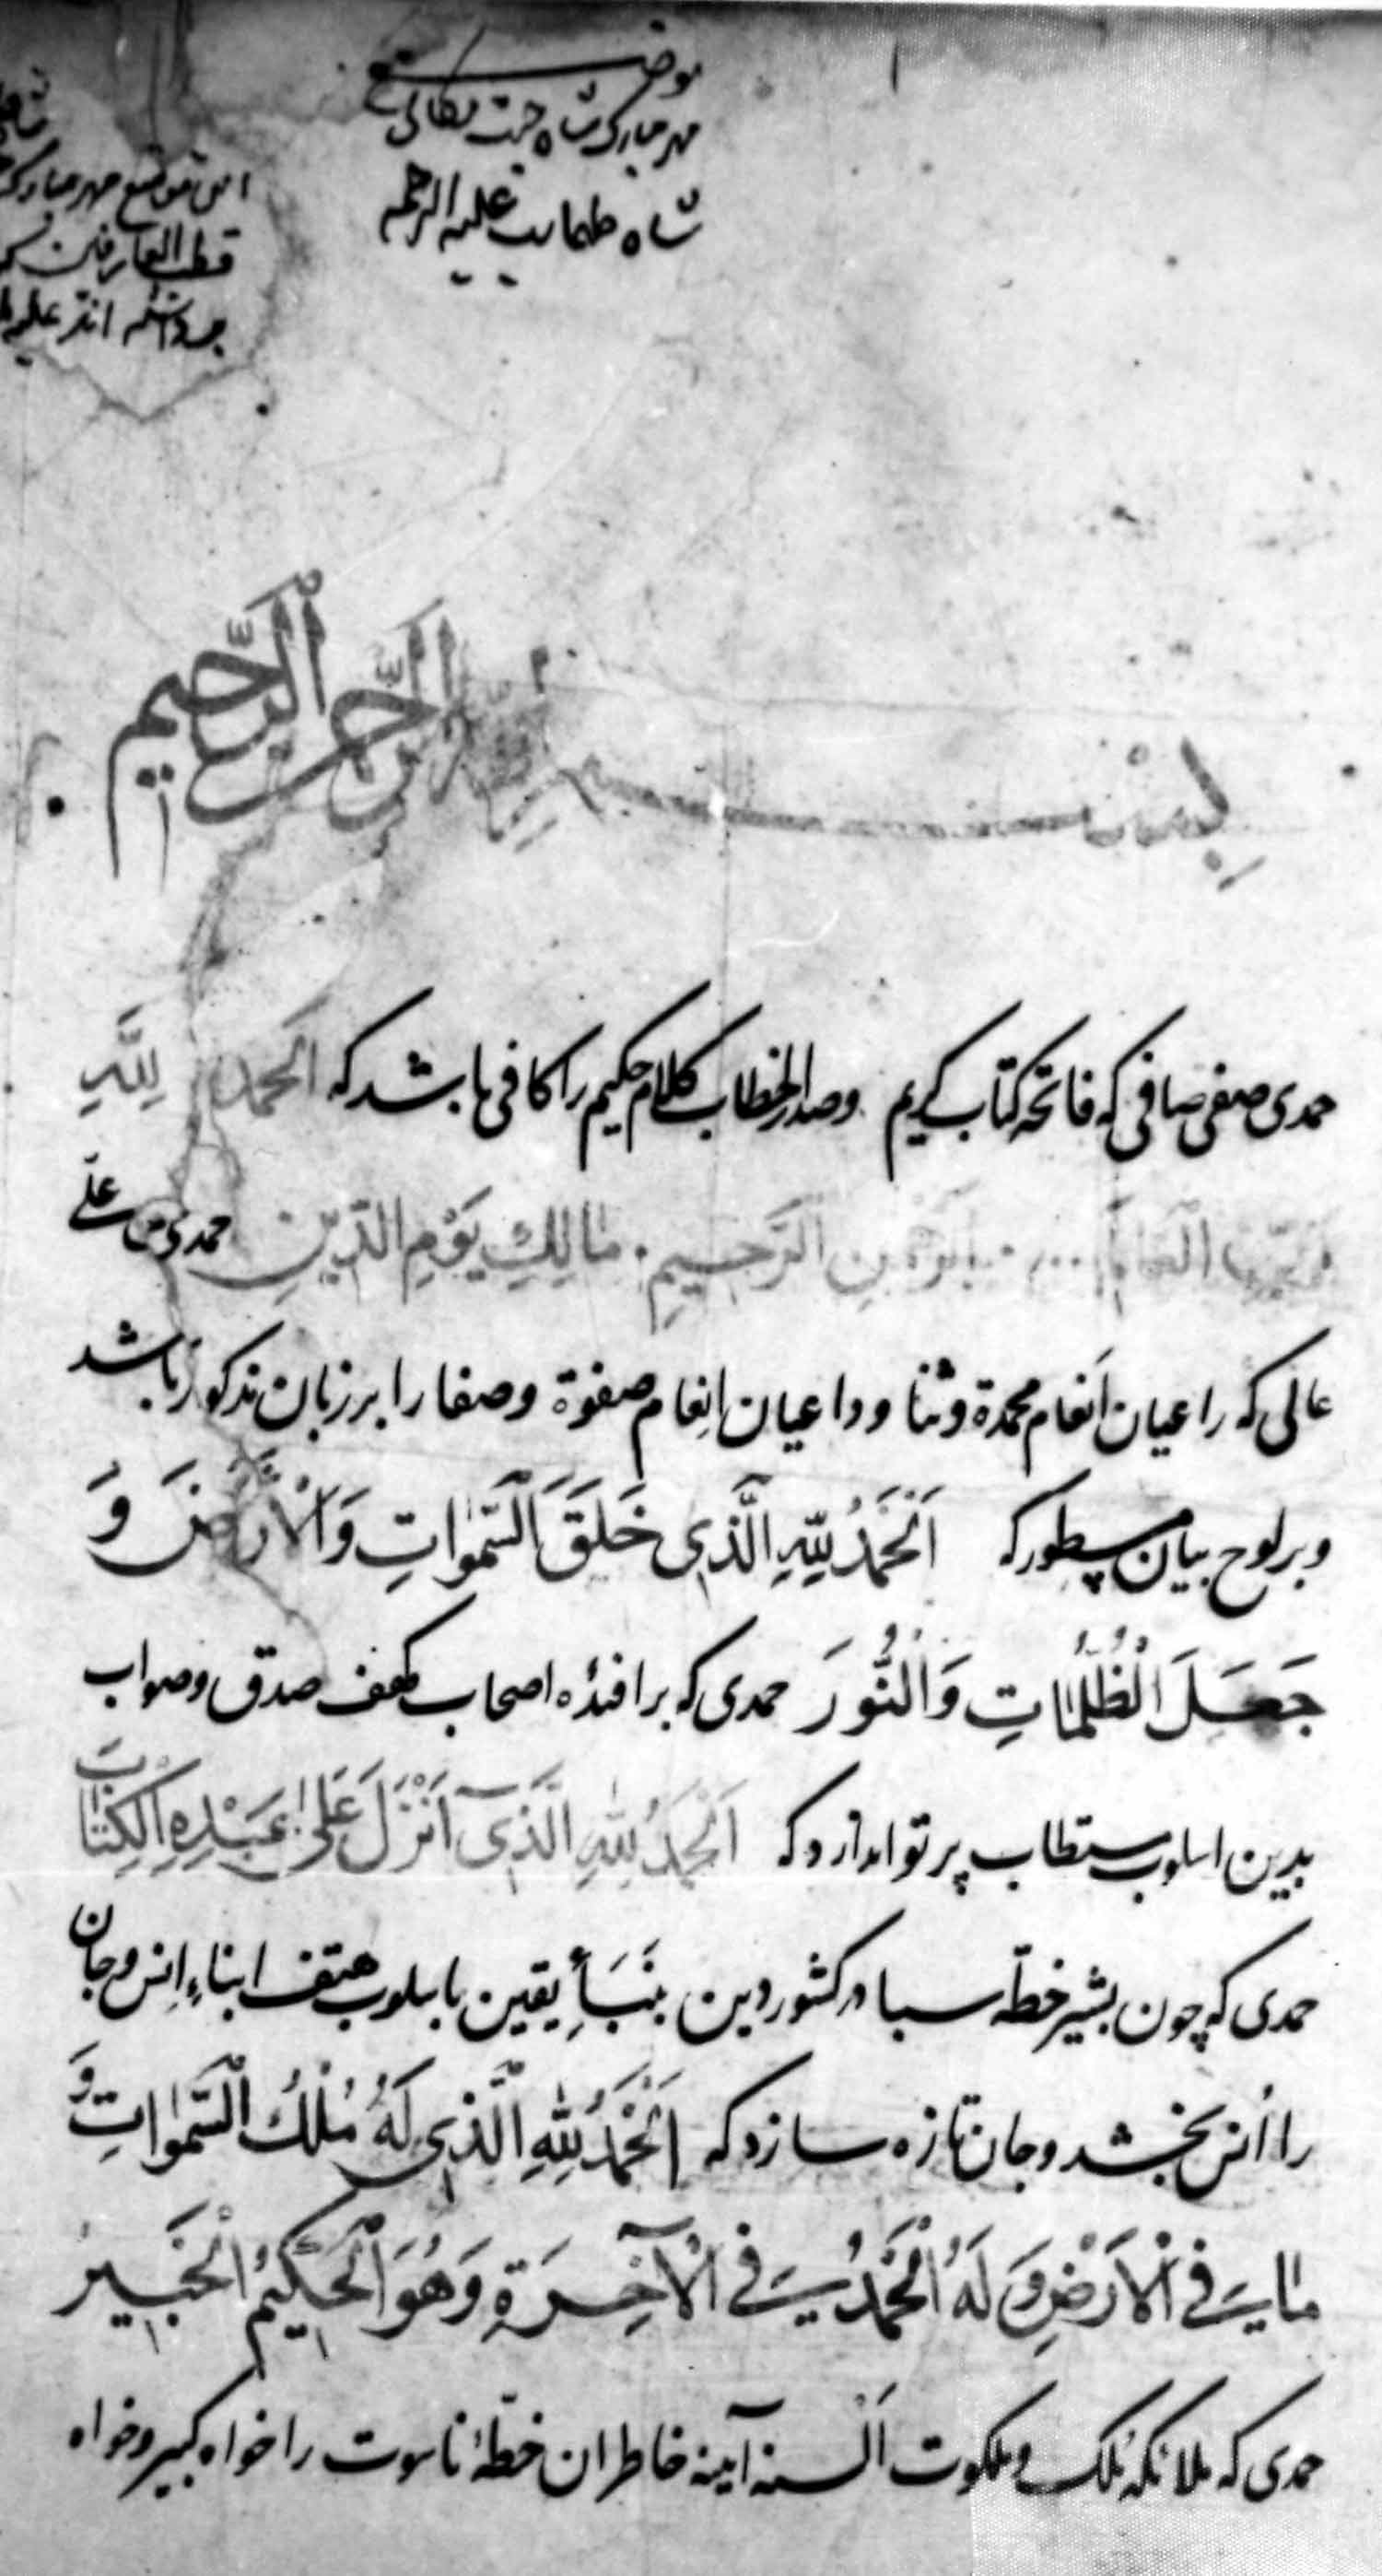 موضع
مهر مبارک شاه جنت مکانی
شاه طهماسب علیه الرحمه
این موضع مهر مبارک
قطب العارفین
علیه
بِسْمِ اللّه الرَّحْمٰن الرَّحیم
حمدی صفی صافی که فاتحه کتاب کریم وصدر الخطاب کلام حکیم را کافی باشد که اَلحمدُ لِلّٰهِ
رَبِّ الْعٰالَمین الرَّحمٰنِ الرَّحیمِ مٰالِكِ یَوْمِ الدّینِ حمدی علی
عالی که راعیان اَنعام محمدة وثنا وداعیان اِنعام صفوة وصفا را بر زبان مذکور باشد
وبر لوح بیان مسطور که اَلْحَمْدُ لِلّٰهِ الَّذی خَلَقَ السَّمٰوٰاتِ وَالْاَرْضَ وَ
جَعَلَ الْظُّلُمٰاتِ وَالْنُّورَ حمدی که بر افئدهٔ اصحاب کهف صدق وصواب
بدین اسلوب مستطاب پرتو اندازد که اَلْحَمْدُ لِلّٰهِ الَّذی اَنْزَلَ عَلیٰ عَبْدِهِ الْکِتٰابَ
حمدی که چون بشیر خطّه سبا در کشور دین بنَبَأِ یقین باسلوب هتف ابناءِ اِنس وجان
را اُنس بخشد وجان تازه سازد که اَلْحَمْدُ لِلّٰهِ الَّذی لَهُ مُلْكُ السَّمٰوٰاتِ وَ
مٰا فی الْاَرْضِ وَ لَهُ الْحَمْدُ فی الْآخِرَةِ وَهُوَ الْحَکیمُ الْخَبیرُ
حمدی که ملائکه مُلک وملکوت اَلسنه آینه خاطران خطّهٔ ناسوت را خواه کبیر وخواه